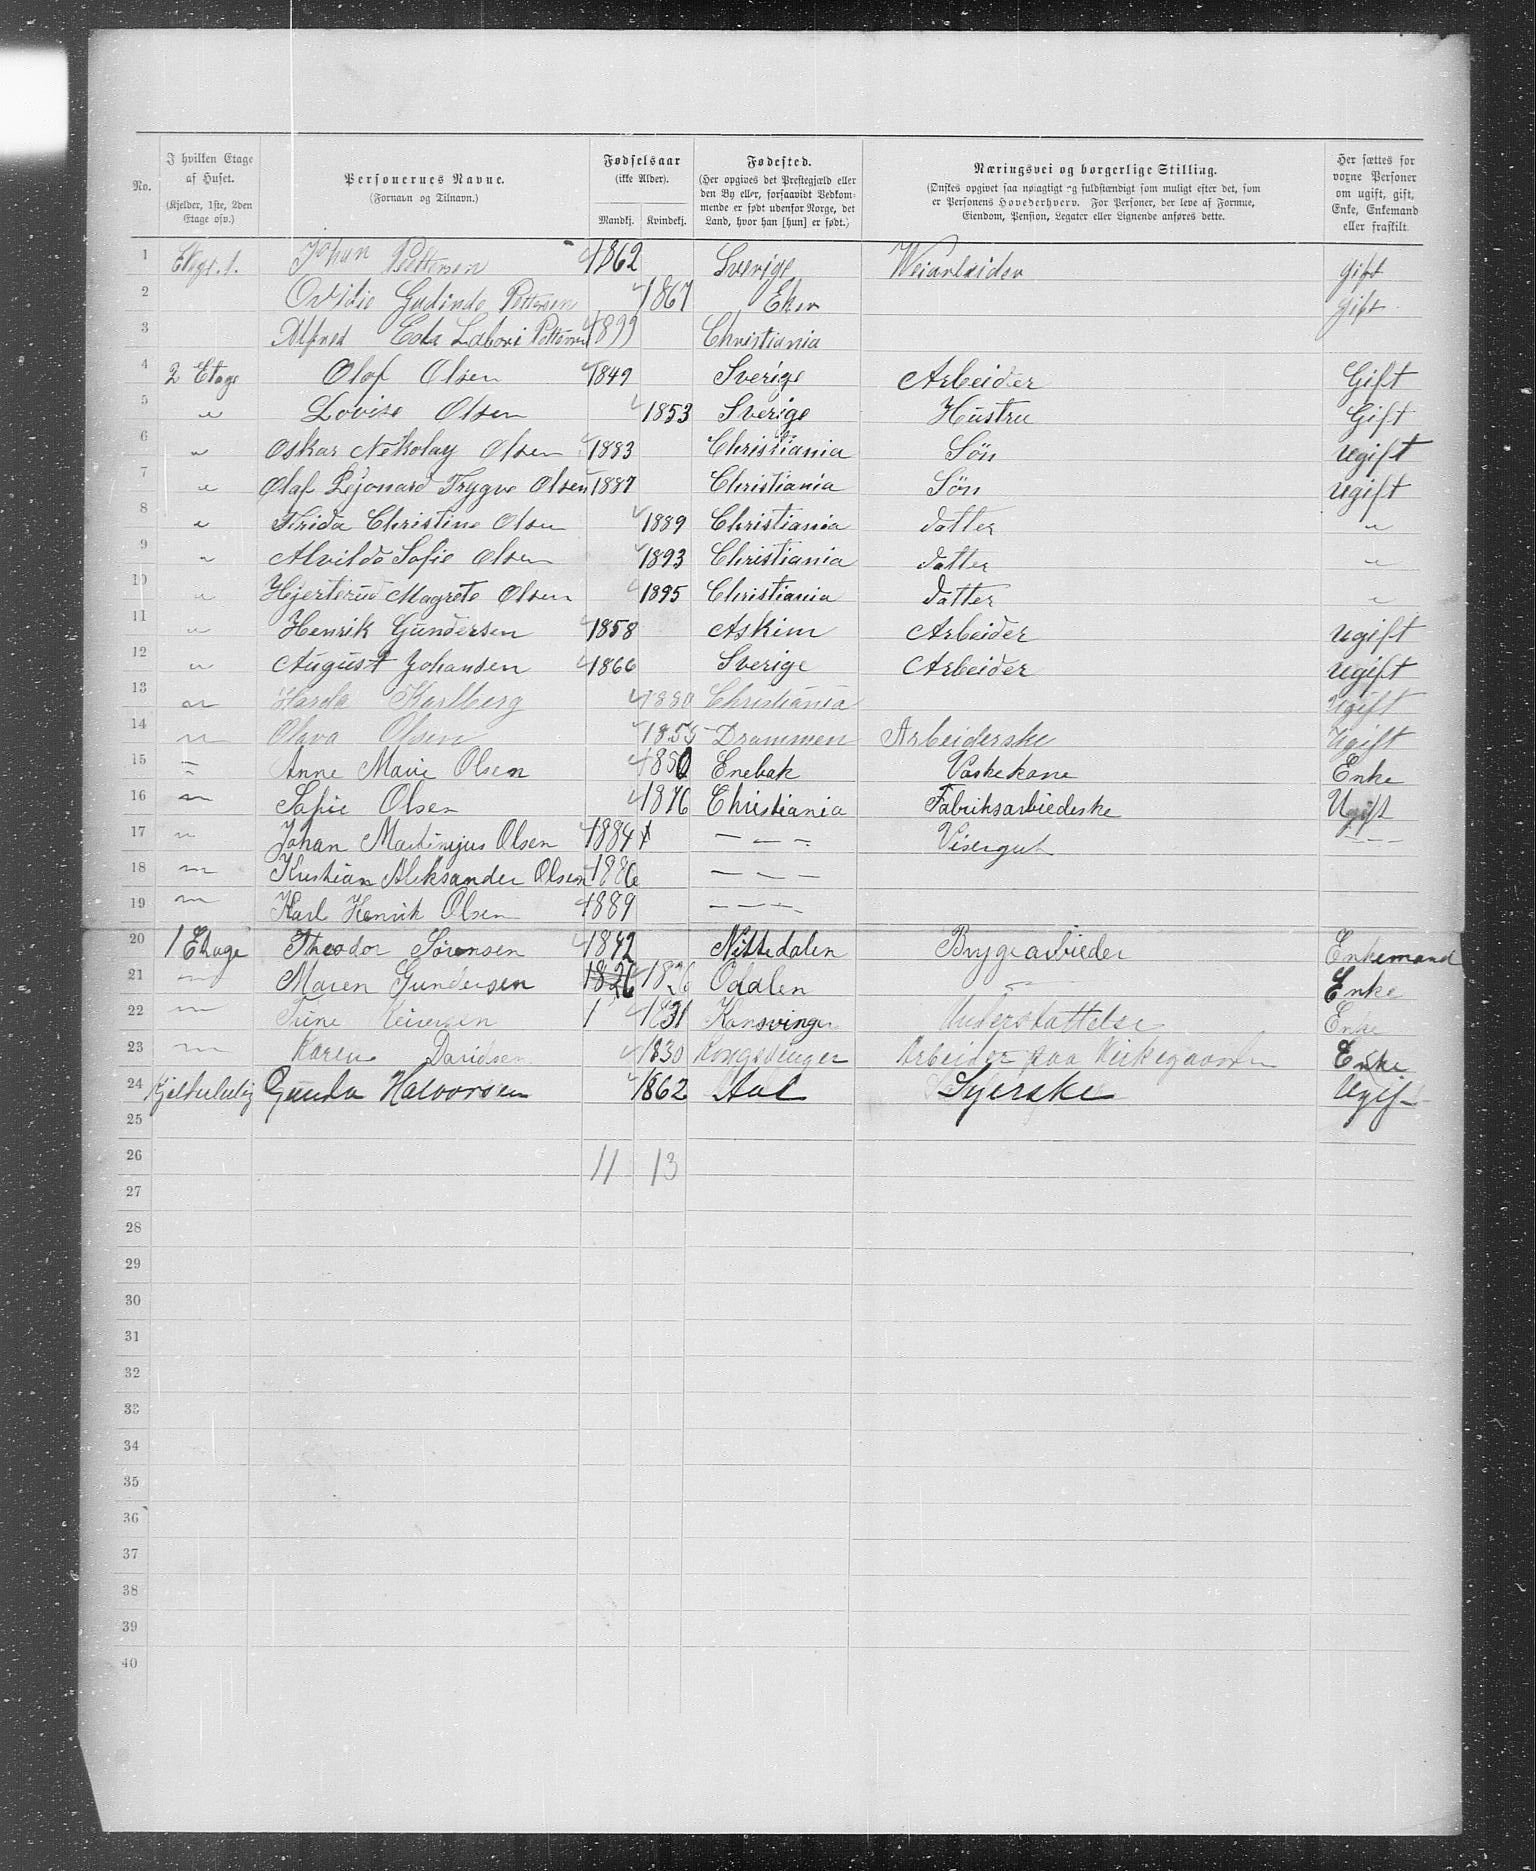 No.
I hvilken Etage af Huset.
(Kjelder, 1ste, 2den Etage osv.)
Personernes Navne.
(Fornavn og Tilnavn.)
Fødselsaar
(ikke Alder).
Mandkj. Kvindekj.
Fødested.
(Her opgives det Prestegjæld eller den By eller, forsaavidt Vedkommende er født udenfor Norge, det Land, hvor han [hun] er født.)
Næringsvei og borgerlige Stilling.
(Ønskes opgivet saa nøiagtigt og fuldstændigt som muligt efter det, som er Personens Hovederhverv. For Personer, der leve af Formue, Eiendom, Pension, Legater eller Lignende anføres dette.
Her sættes for voxne Personer om ugift, gift, Enke, Enkemand eller fraskilt.
1 Johan Pettersen 1862 Sverige Veiarbeider gift
2 Pettersen 1867 Eker gift
3 Alfred Pettersen 1899 Christiania
4 2 Etage Olaf Olsen 1849 Sverige Arbeider Gift
5 " Lovise Olsen 1853 Sverige Hustru Gift
6 " Oskar Nekolay Olsen 1883 Christiania Søn ugift
7 " Olaf Trygve Olsen 1887 Christiania Søn ugift
8 " Frida Christine Olsen 1889 Christiania datter "
9 " Alvilda Sofie Olsen 1893 Christiania datter "
10 " Hjerterud Magrete Olsen 1895 Christiania datter "
11 " Henrik Gundersen 1858 Askim Arbeider ugift
12 " August Johansen 1866 Sverige Arbeider ugift
13 " Karlberg 1880 Christiania Ugift
14 " Olava Olsen 1855 Drammen Arbeiderske Ugift
15 " Anne Marie Olsen 1850 Enebak Vaskekone Enke
16 " Sofie Olsen 1876 Christiania Fabriksarbiedeske Ugift
17 " Johan Martinjus Olsen 1884 — " — Visergut — " —
18 " Kristian Aleksander Olsen 1886 — " —
19 " Karl Henrik Olsen 1889 — " —
20 1 Etage Theodor Sørensen 1842 Nittedalen Brygearbieder Enkemand
21 " Maren Gundersen 1826 1826 Odalen — " — Enke
22 " Trine 1 1831 Konsvinger Understøttelse Enke
23 " Karen Davidsen 1830 Kongsvinger Arbeider paa Kirkegaarden Enke
24 Gunda Halvorsen 1862 Aal Syerske Ugift
25
26 11 13
27
28
29
30
31
32
33
34
35
36
37
38
39
40